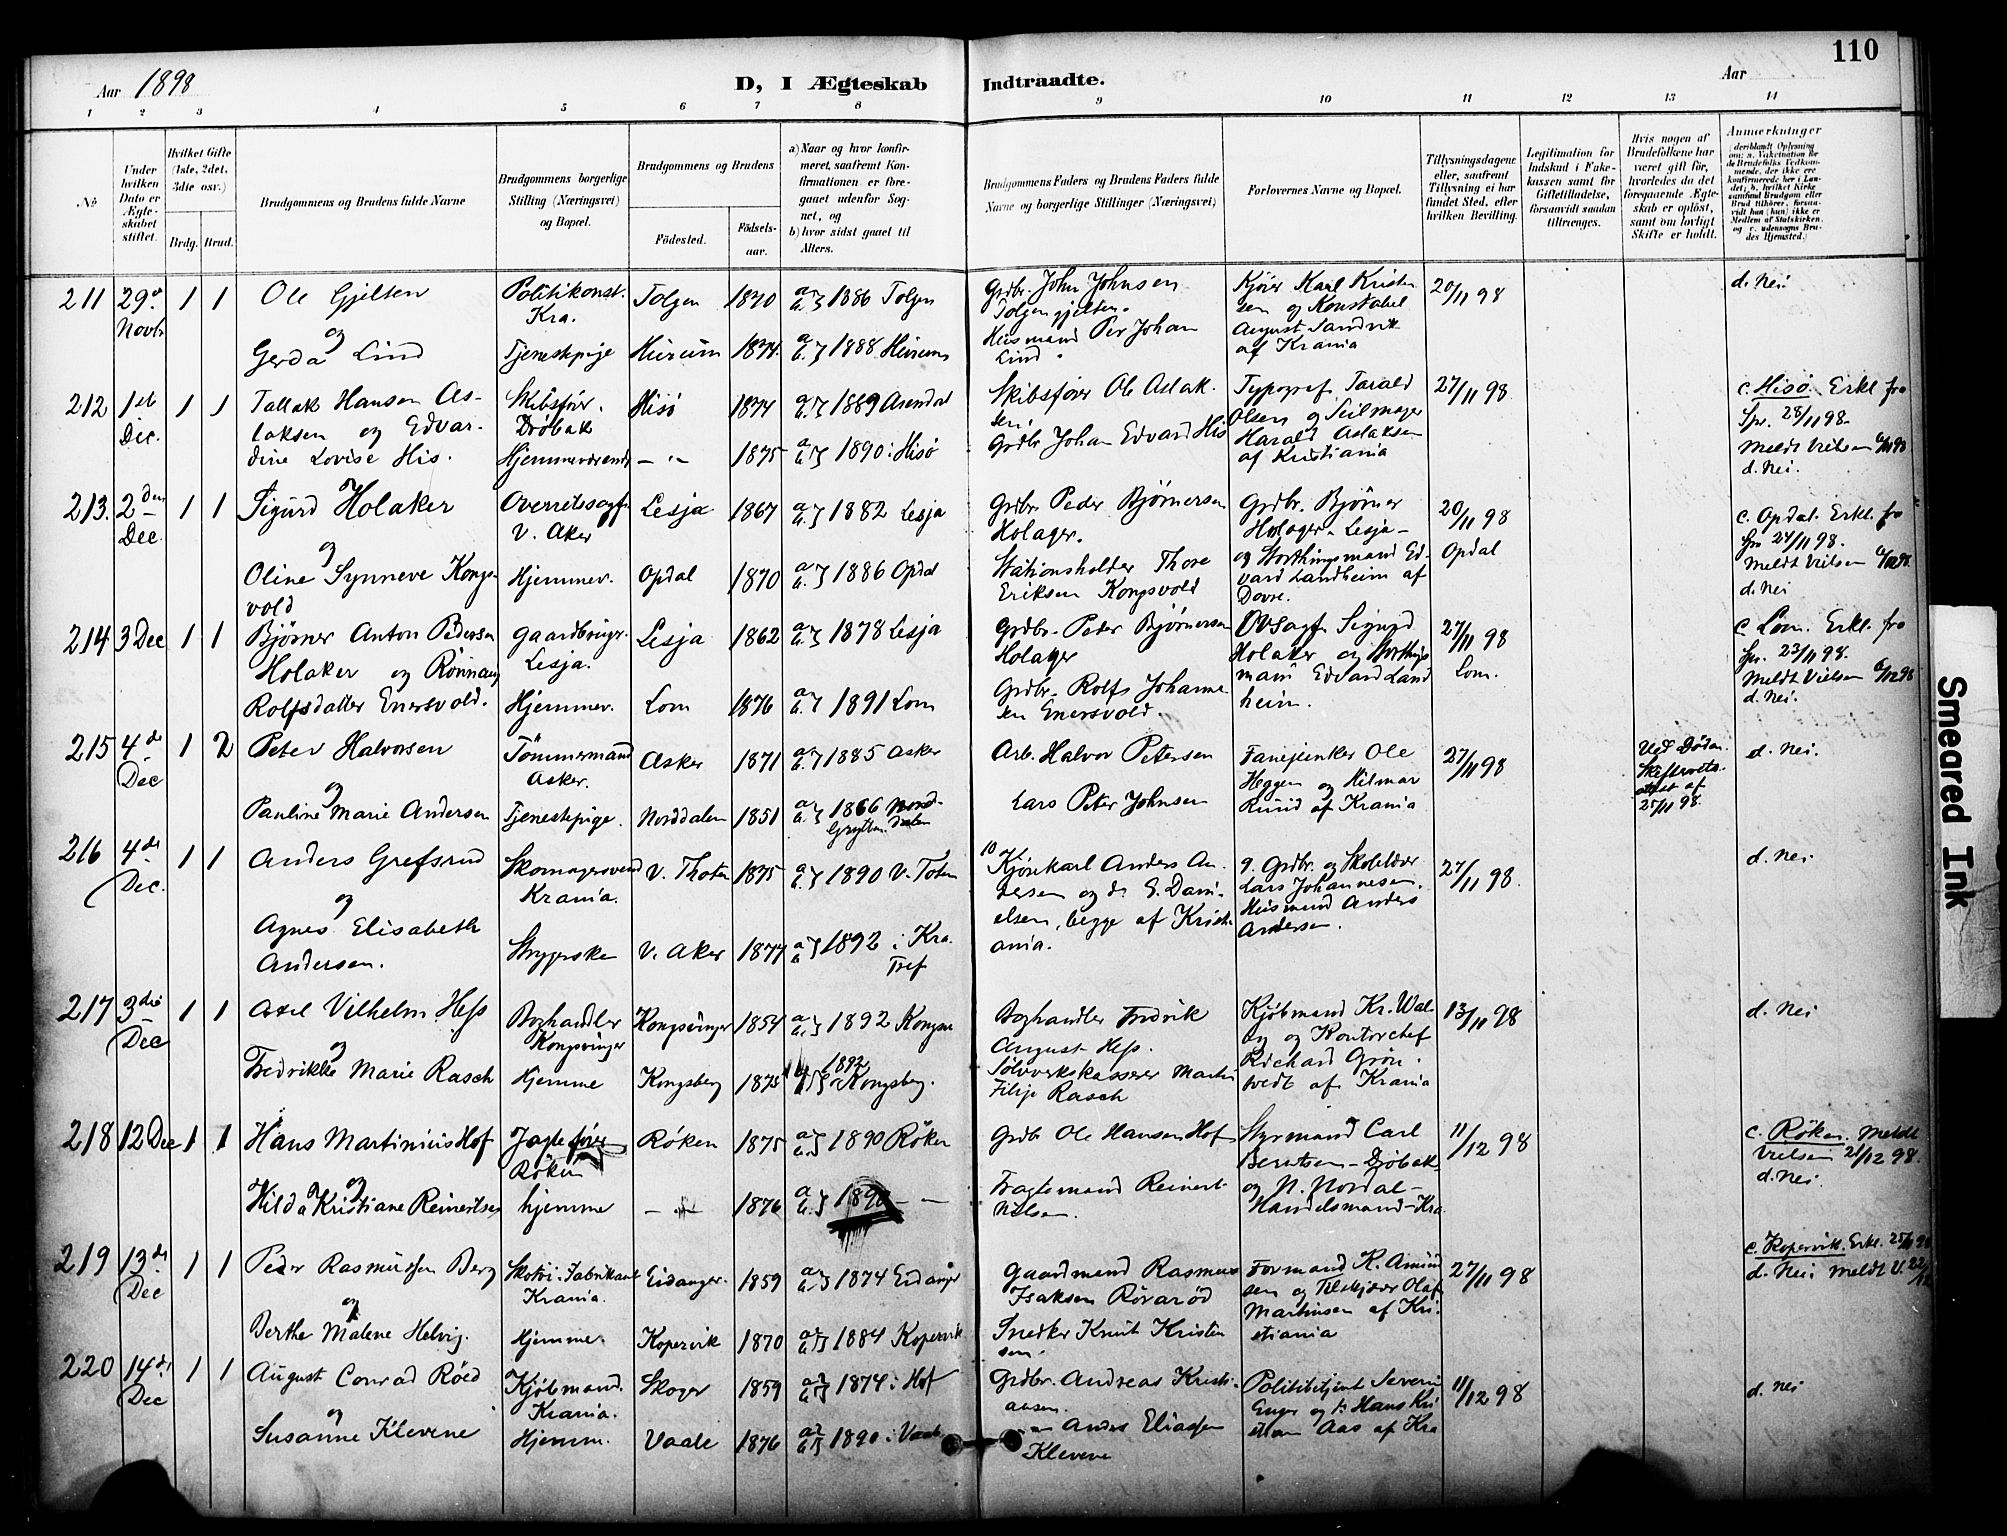 Aar 1898
D, I Ægteskab Indtraadte.
Aar
110
1 2 3 4 5 6 7 8 9 10 11 12 13 14
No
Under hvilken Dato er Ægteskabet stiftet.
Hvilket Gifte (1ste, 2det, 3die osv.)
Brdg. Brud.
Brudgommens og Brudens fulde Navne
Brudgommens borgerlige Stilling (Næringsvei) og Bopæl.
Brudgommens og Brudens
Födested.
Födselsaar.
a) Naar og hvor konfirmeret, saafremt Konfirmationen er foregaaet udenfor Sognet, og
b) hvor sidst gaaet til Alters.
Brudgommens Faders og Brudens Faders fulde Navne og borgerlige Stillinger (Næringsvei)
Forlovernes Navne og Bopæl.
Tillysningsdagene eller, saafremt Tillysning ei har fundet Sted, efter hvilken Bevilling.
Legitimation for Indskud i Fakekassen samt for Giftetilladelse, forsaavidt saadan tiltrænges.
Hvis nogen af Brudefolkene har været gift før, hvorledes da det foregaaende Ægteskab er opløst, samt om lovligt Skifte er holdt.
Anmerkninger
211 29de Novbr 1 1 Ole Gjelten Politikonst. Kra. Tolgen 1870 1886 Tolgen Grdbr. John Johnsen Tolgengjelten. Kjører Karl Kristensen og Konstabel August Sandvik af Krania 20/11 98 d. Nei
og
Gerda Lind Tjenestepige Hurum 1874. 1888 Hurum Husmand Per Johan Lind
212 1ste Dec. 1 1 Tallak Hansen Aslaksen og Edvardine Lovise His. Skibsfører. Drøbak Hisø 1874 1889 Arendal Skibsfører Ole Aslaksen. Typograf Tarald Olsen og Seilmager Harald Aslaksen af Kristiania 27/11 98 c. Hisø Erkl. fra Spr. 28/11 98. Meldt Vielsen d. Nei.
Hjemmeværende — " — 1875 1890 i Hisø Grdbr Johan Edvard His
213. 2den Dec. 1 1 Sigurd Holaker Overretssagf. V. Aker Lesja 1867 1882 Lesja Grdbr. Peder Bjørnersen Holager. Grdbr. Bjørner Holager - Lesja - og Storthingsmand Edvard Landheim af Dovre. 20/11 98 Opdal c. Opdal. Erkl. fra Spr 24/11 98. Meldt Vielsen d. Nei
og
Oline Synneve Kongsvold Hjemmev. Opdal 1870 1886 Opdal Stationsholder Thore Eriksen Kongsvold
214 3 Dec 1 1 Bjørner Anton Pedersen Holaker og Rönnaug Rolfsdatter Enersvold. Gaardbruger. Lesja. Lesja 1862 1878 Lesja Grdbr. Peder Bjørnersen Holager OVsagf. Sigurd Holaker og Storthingsmand Edvard Landheim. 27/11 98 Lom. c. Lom. Erkl. fra Spr. 23/11 98. Meldt Vielsen d. Nei.
Hjemmev. Lom 1876 1891 Lom Grdbr. Rolf Johannesen Enersvold.
215 4de Dec 1 2 Peter Halvorsen Tömmermand Asker. Asker 1871 1885 Asker Arb. Halvor Petersen Fanejunker Ole Heggen og Hilmar Ruud af Krania 27/11 98 Ved Døden. Skifteretsattest af 25/11 98. d. Nei.
og
Pauline Marie Andersen Tjenestepige. Norddalen 1851 1866 Norddalen Grytten Lars Peter Johnsen
216 4de Dec. 1 1 Anders Grefsrud Skomagersvend Krania. V. Thoten 1875 1890 V. Toten 10 Kjørekarl Anders Andersen og do E. Danielsen, begge af Kristiania. 9. Grdbr. og Skolelærer Lars Johannesen. Husmand Anders Andersen. 27/11 98. d. Nei
og
Agnes Elisabeth Andersen. Strygerske V. Aker 1877 1892 i Kra. Tref
217 3die Dec 1 1 Axel Vilhelm Hess Boghandler Kongsvinger Kongsvinger 1854 1892 Kongsv Boghandler Fredrik August Hess. Kjøbmand Kr. Wal og Kontorchef Richard Grøntvedt af Krania 13/11 98 d. Nei
og
Fredrikke Marie Rasch Hjemme Kongsberg 1875 1892 Kongsberg. Sølvverkskasserer Martin Filip Rasch
218 12 Dec 1 1 Hans Martinius Hof Jagtefører Röken Røken 1875 1890 Røken Grdbr Ole Hansen Hof Styrmand Carl Berntsen - Drøbak og N. Nordal - Handelsmand - Kra 11/12 98 c. Røken. Meldt Vielsen 21/12 98. d. Nei.
og
Hilda Kristiane Reinertsen hjemme — " — 1876 1890 — — Fragtemand Reinert Nilsen.
219 13de Dec 1 1 Peder Rasmussen Berg Skotøi-Fabrikant Krania. Eidanger 1859 1874 Eidanger Gaardmand Rasmus Isaksen Rövaröd Formand K. Amundsen og Filskjærer Olaf Martinsen af Kristiania 27/11 98 c. Kopervik. Erkl. 25/11 98 d. Nei Meldt V. 22/12
og
Berthe Malene Helvig. Hjemme. Kopervik 1870 1884 Kopervik Snedker Knut Kristensen.
220 14de Dec 1 1 August Conrad Röed Kjøbmand. Krania. Skoger 1859 1874 i Hof Grdbr. Andreas Kristiansen. Politibetjent Severin Enger og do Hans Kristian Aas af Kra 11/12 98 d. Nei
og
Susanne Klevene Hjemm. Vaale 1876 1890 i Vaale — Anders Eliassen Klevene
Smeared Ink